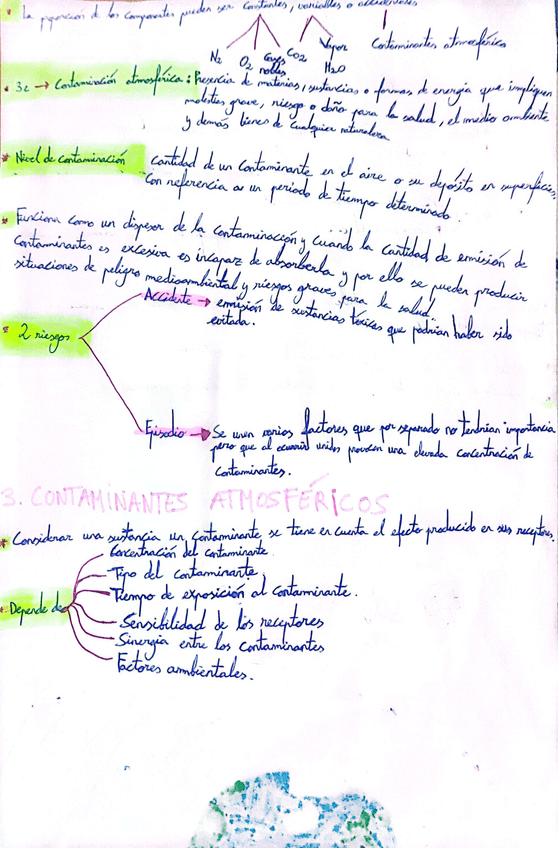 * La proporción de los componentes pueden ser constantes, variables o accidentales
N2 O2 Gases nobles CO2 Vapor H2O Contaminantes atmosféricos
* 3c → Contaminación atmosférica: Presencia de materias, sustancias o formas de energía que impliquen
molestias grave, riesgo o daño para la salud, el medio ambiente
y demás bienes de cualquier naturaleza
* Nivel de contaminación Cantidad de un contaminante en el aire o su depósito en superficies,
con referencia a un periodo de tiempo determinado
* Funciona como un dispesor de la contaminación y cuando la cantidad de emisión de
contaminantes es excesiva es incapaz de absorberla y por ello se pueden producir
situaciones de peligro medioambiental y riesgos graves para la salud
* 2 riesgos
Accidente → emisión de sustancias tóxicas que podrían haber sido
evitada.
Episodio → Se unen varios factores que por separado no tendrían importancia
pero que al ocurrir unidos provocan una elevada concentración de
contaminantes.
3. CONTAMINANTES ATMOSFÉRICOS
* Considerar una sustancia un contaminante se tiene en cuenta el efecto producido en sus receptores.
* Depende de
Concentración del contaminante
Tipo del contaminante
Tiempo de exposición al contaminante.
Sensibilidad de los receptores
Sinergia entre los contaminantes
Factores ambientales.